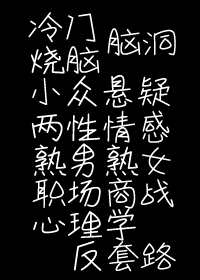 冷门
烧脑 脑洞
小众悬疑
两性情感
熟男熟女
职场商战
心理学
反套路